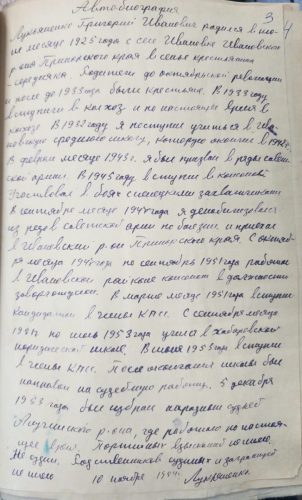 3 4
Автобиография
Лукьяненко Григорий Иванович родился в ию-
не месяце 1925 года в селе Ивановке Ивановского
р-она Приморского края в семье крестьянина
-середняка. Родители до октябрьской революции
и после до 1933 года были крестьяне. В 1933 году
вступили в колхоз и по настоящее время в
колхозе. В 1932 году я поступил учиться в Ива-
новскую среднюю школу, которую окончил в 1942 г.
В феврале месяце 1943 г. я был призван в ряды совет-
ской армии. В 1945 году вступил в комсомол
Участвовал в боях с немецкими захватчиками
В сентябре месяце 1945 года я демобилизовался
из ряд в советской армии по болезни и приехал
в Ивановский р-он Приморского края. С октяб-
ря месяца по сентябрь 1951 года работал
в Ивановском райкоме комсомола в должности
завороготделом. В марте месяце 1951 года вступил
кандидатом в члены КПСС. С сентября месяца
1951 г. по июль 1953 года учился в хабаровской
юридической школе. В июне 1953 года вступил
в члены КПСС. После окончания школы был
направлен на судебную работу. 5 декабря
1953 года был избран народным судьёй
р-она, где работаю по настоя-
щее время. Партийных взысканий не имею.
Не судим. Родственников судимых и заграницей
не имею 10 июня Лукьяненко